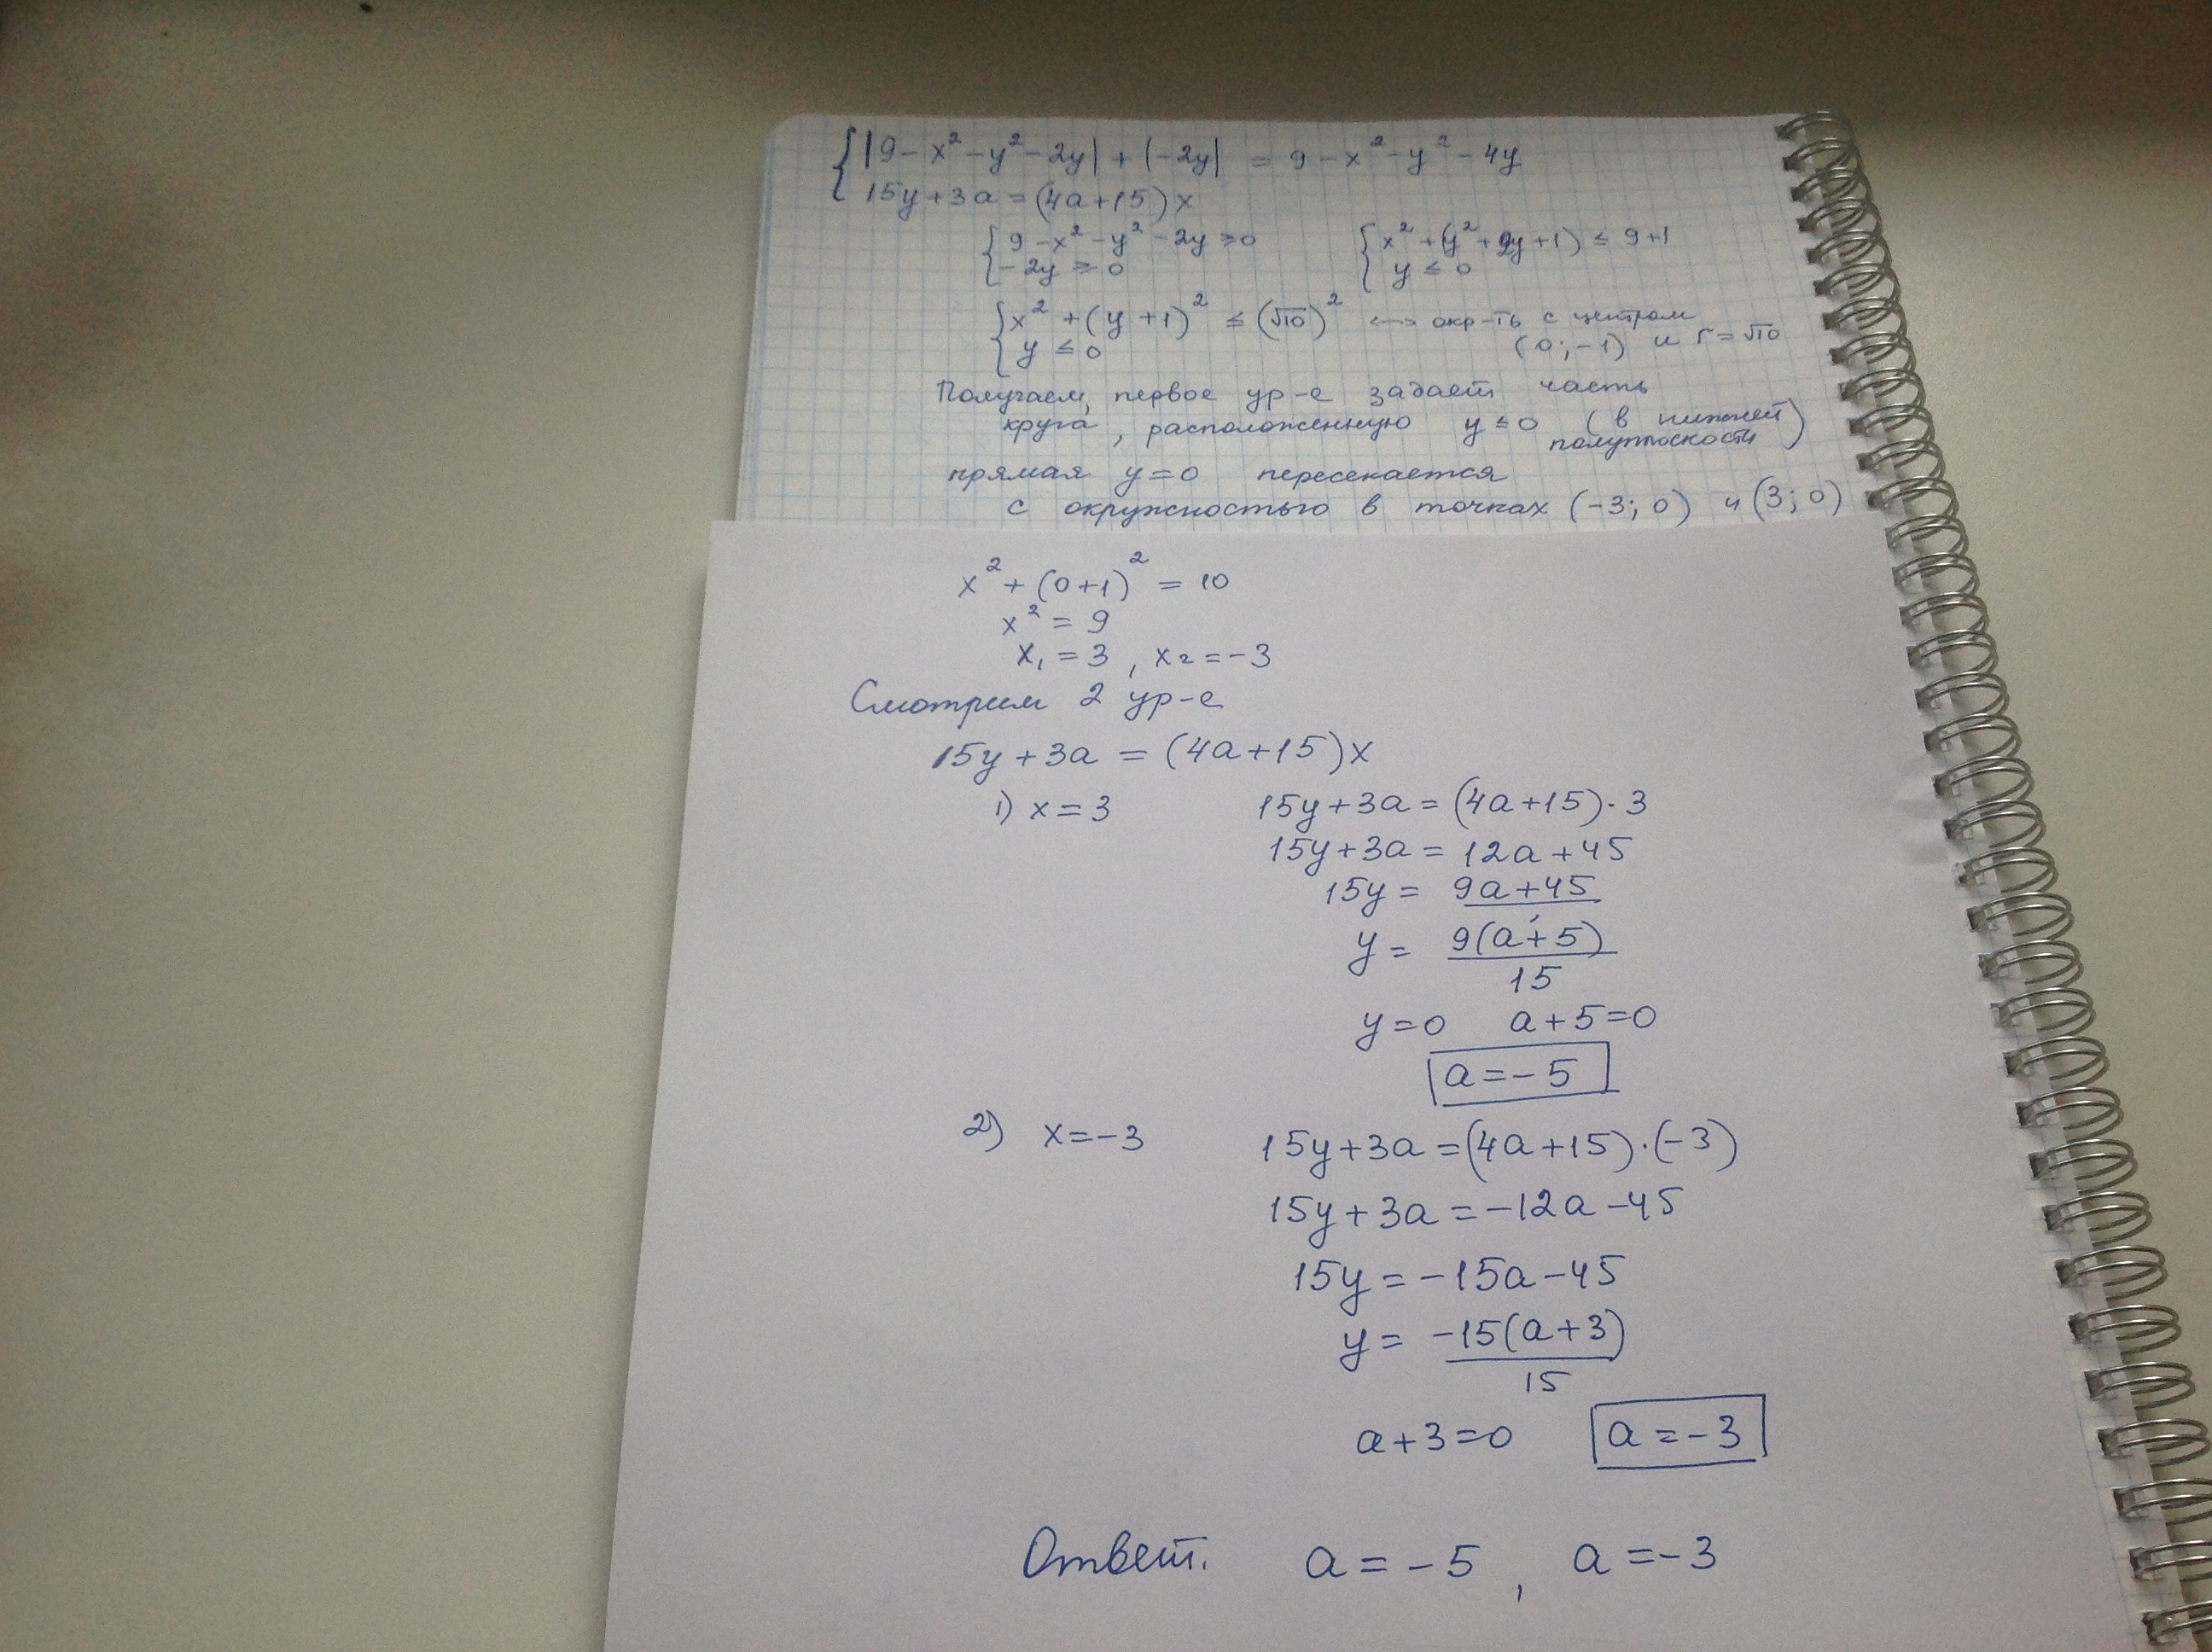 |9 - x² - y² - 2y| + |-2y| = 9 - x² - y² - 4y
15y + 3a = (4a + 15)x
9 - x² - y² - 2y ≥ 0
-2y ≥ 0
x² + (y² + 2y + 1) ≤ 9 + 1
y ≤ 0
x² + (y + 1)² ≤ (√10)² ↔ окр-ть с центром
y ≤ 0
(0; -1) и r = √10
Получаем, первое ур-е задает часть
круга, расположенную y ≤ 0 (в нижней
полуплоскости)
прямая y = 0 пересекается
с окружностью в точках (-3; 0) и (3; 0)
x² + (0 + 1)² = 10
x² = 9
x₁ = 3, x₂ = -3
Смотрим 2 ур-е
15y + 3a = (4a + 15)x
1) x = 3 15y + 3a = (4a + 15) · 3
15y + 3a = 12a + 45
15y = 9a + 45
y = 9(a + 5)
15
y = 0 a + 5 = 0
a = -5
2) x = -3 15y + 3a = (4a + 15) · (-3)
15y + 3a = -12a - 45
15y = -15a - 45
y = -15(a + 3)
15
a + 3 = 0 a = -3
Ответ. a = -5, a = -3